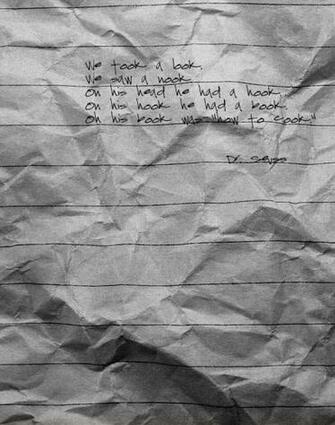 We took a look.
We saw a nook.
On his head he had a hook.
On his hook he had a book.
On his book was "how to cook."
Dr. Seuss